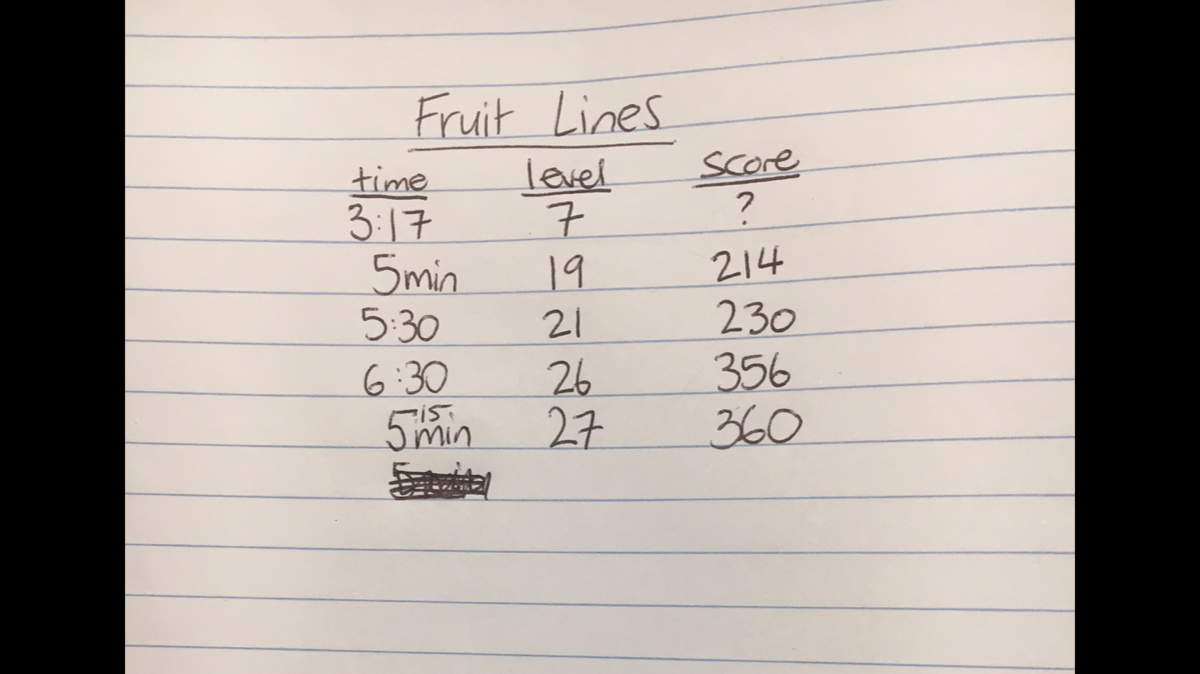 Fruit Lines
time level score
3:17 7 ?
5min 19 214
5:30 21 230
6:30 26 356
5 15 min 27 360